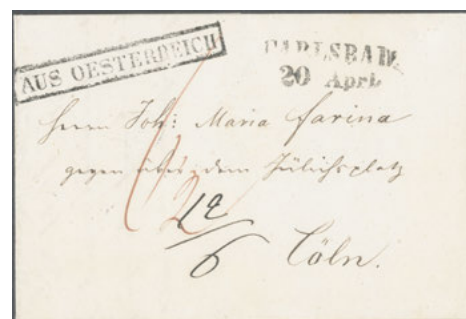 AUS OESTERREICH
CARLSBAD.
20 April
Herrn Joh: Maria Farina
gegenüber dem Jülichsplatz
12
6
Cöln.